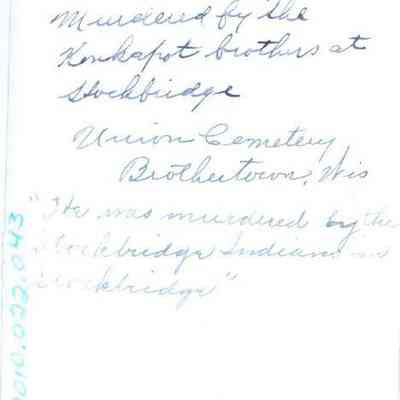 Murdered by the
Konkapot brothers at
Stockbridge
Union Cemetery
Brothertown, Wis
"He was murdered by the
Stockbridge Indians in
Stockbridge"
2010.022.043